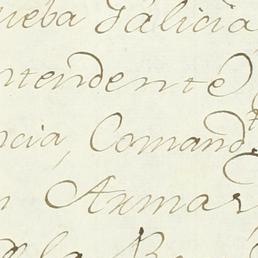 ueba Galicia
ntendente
ncia, Comand
n Armar